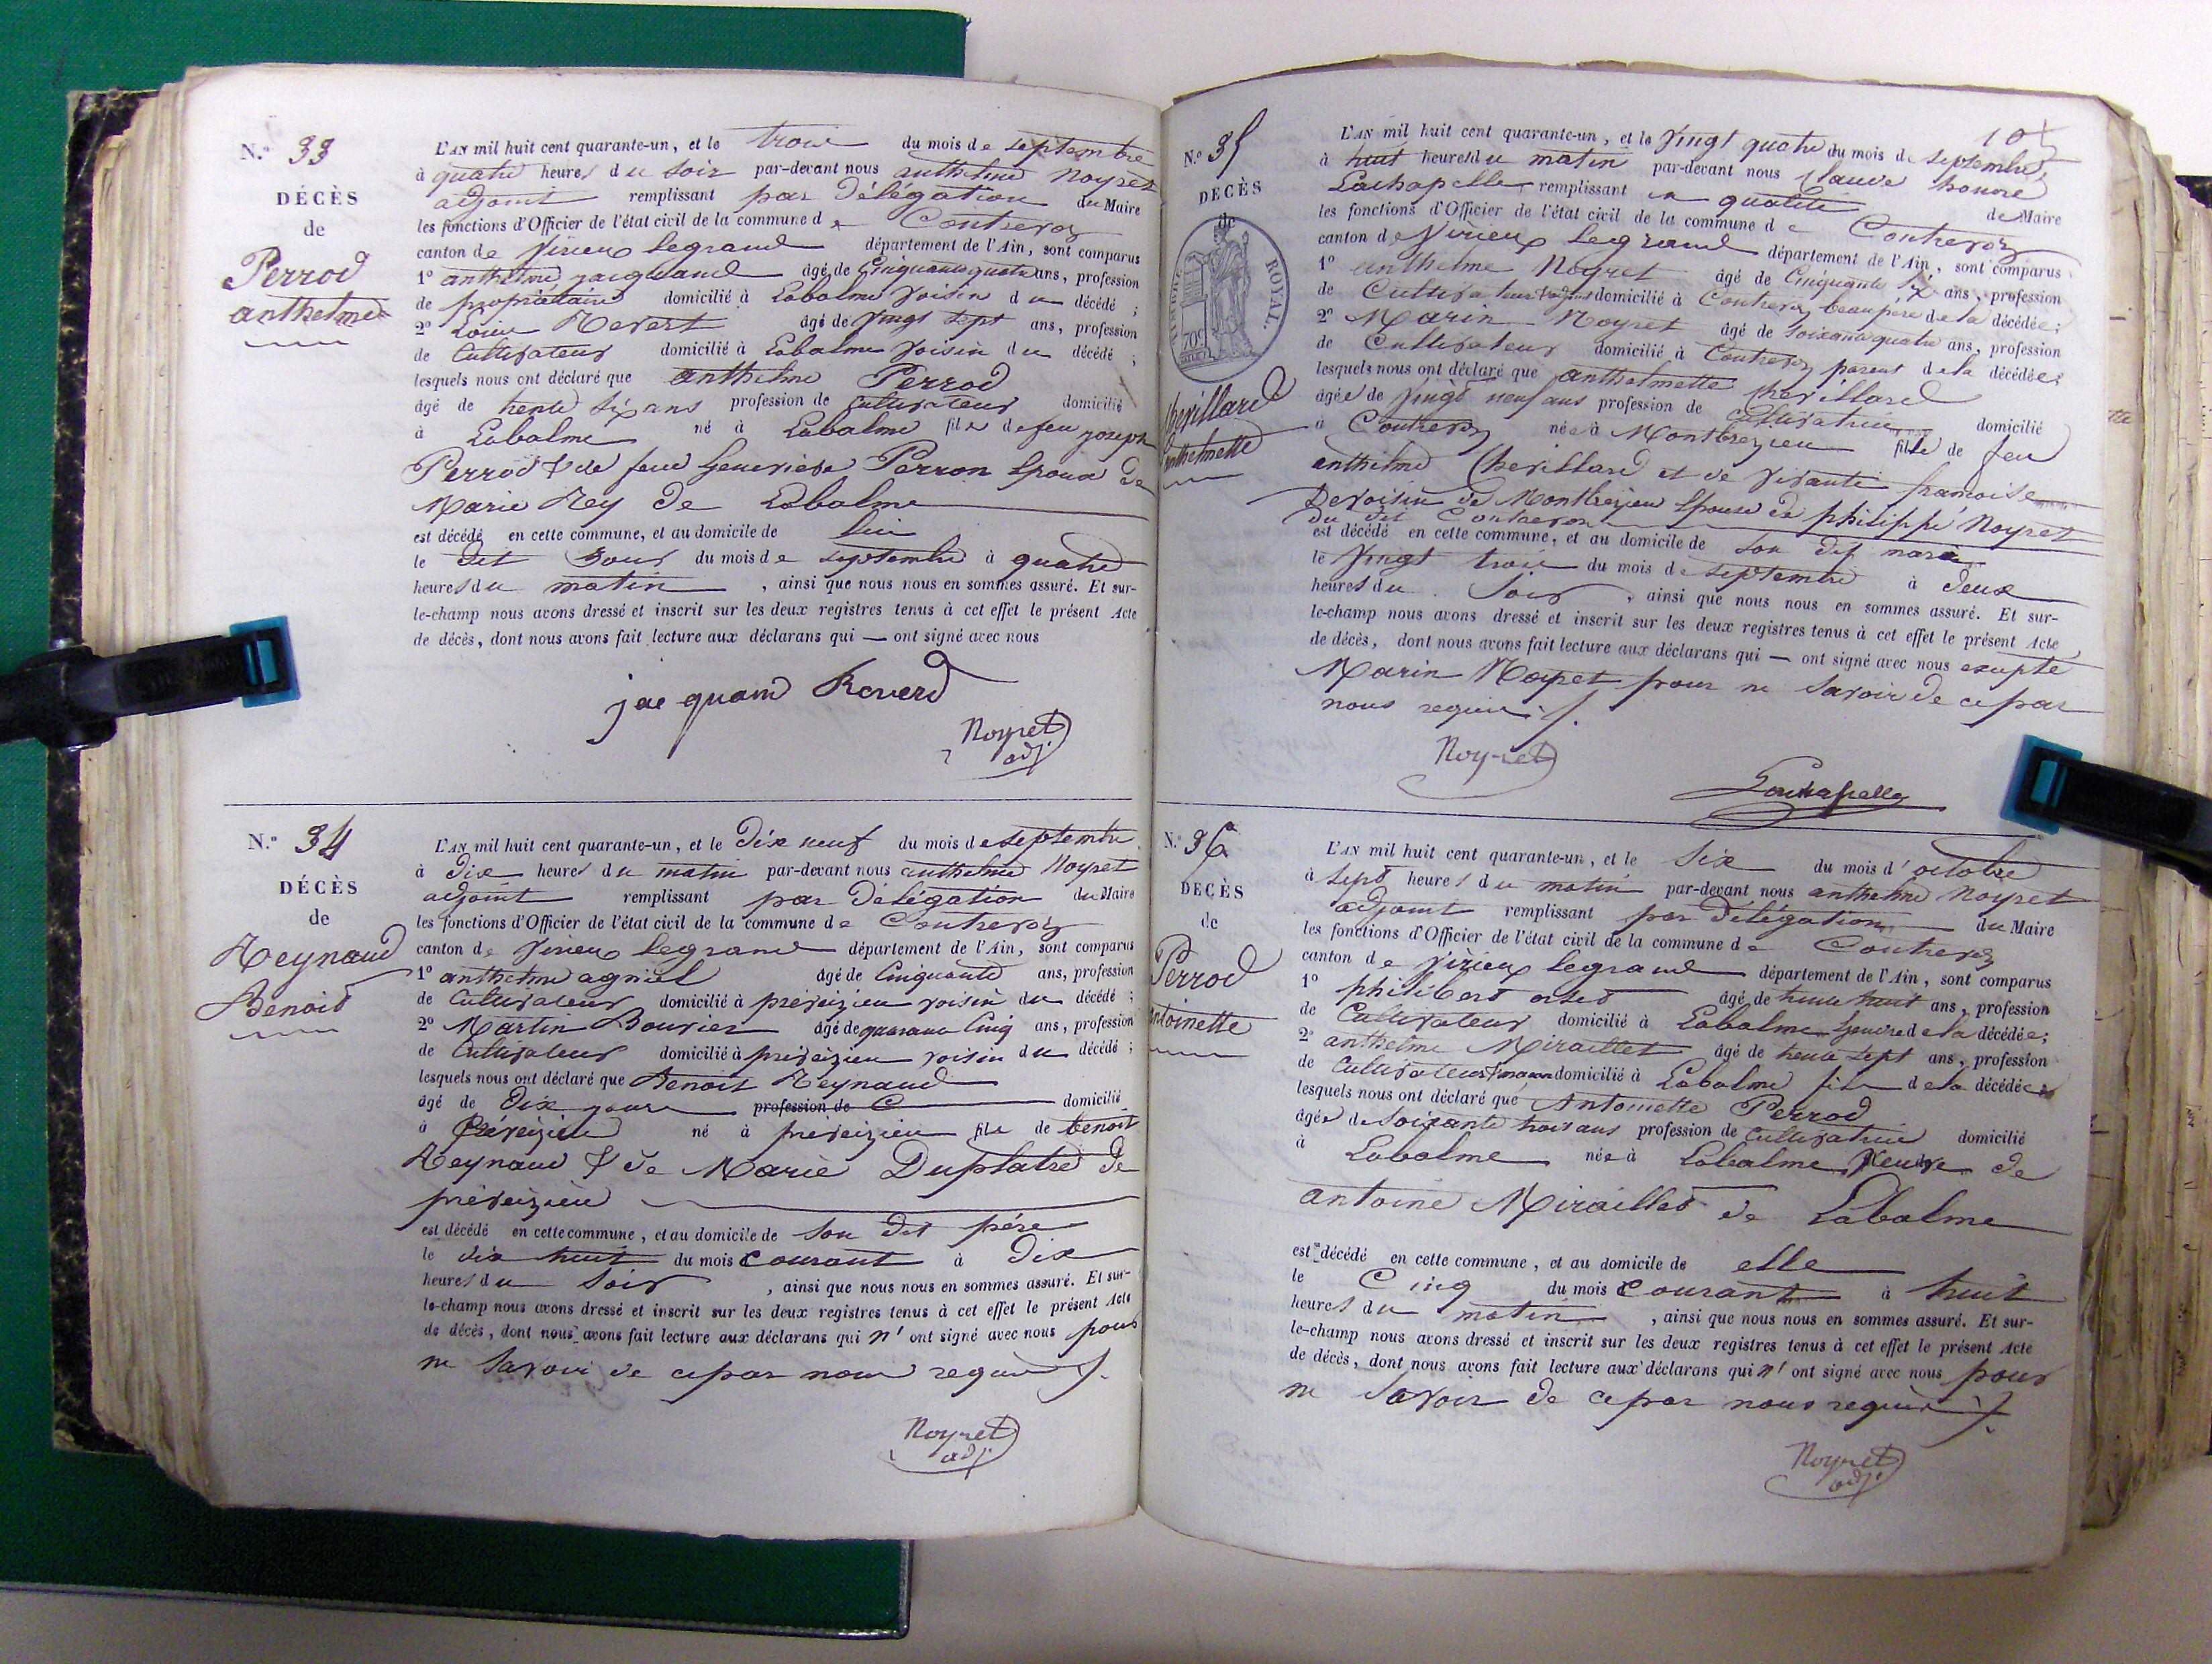 N.º 33
DÉCÈS
de
Perrod
anthelme
L'AN mil huit cent quarante-un, et le trois du mois de septembre
à quatre heures du soir par-devant nous anthelme Noyret
adjoint remplissant par Délégation du Maire
les fonctions d'Officier de l'état civil de la commune de Contrevoz
canton de Virieu legrand département de l'Ain, sont comparus
1º anthelme jacquand âgé de Cinquante quatre ans, profession
de propriétaire domicilié à Labalme Voisin du décédé ;
2º Louis Revert âgé de Vingt sept ans, profession
de Cultivateur domicilié à Labalme Voisin du décédé ;
lesquels nous ont déclaré que anthelme Perrod
âgé de trente six ans profession de Cultivateur domicilié
à Labalme né à Labalme fils de feu joseph
Perrod & de feue Genevieve Perron Epoux de
Marie Rey de Labalme
est décédé en cette commune, et au domicile de lui
le dit jour du mois de septembre à quatre
heures du matin , ainsi que nous nous en sommes assuré. Et sur-
le-champ nous avons dressé et inscrit sur les deux registres tenus à cet effet le présent Acte
de décès, dont nous avons fait lecture aux déclarans qui — ont signé avec nous
jacquand Reverd
Noyret
adj.
N.º 34
DÉCÈS
de
Reynaud
Benoit
L'AN mil huit cent quarante-un, et le Dix neuf du mois de septembre
à Dix heures du matin par-devant nous anthelme Noyret
adjoint remplissant par Délégation du Maire
les fonctions d'Officier de l'état civil de la commune de Contrevoz
canton de Virieu legrand département de l'Ain, sont comparus
1º anthelme agniel âgé de Cinquante ans, profession
de Cultivateur domicilié à préveizieu voisin du décédé ;
2º Martin Bouvier âgé de quarante Cinq ans, profession
de Cultivateur domicilié à préveizieu voisin du décédé ;
lesquels nous ont déclaré que Benoit Reynaud
âgé de Dix jours profession de domicilié
à Préveizieu né à préveizieu fils de benoit
Reynaud & de Marie Duplatre de
préveizieu
est décédé en cette commune, et au domicile de son dit père
le dix huit du mois courant à Dix
heures du Soir , ainsi que nous nous en sommes assuré. Et sur-
le-champ nous avons dressé et inscrit sur les deux registres tenus à cet effet le présent Acte
de décès, dont nous avons fait lecture aux déclarans qui n' ont signé avec nous pour
ne Savoir de ce par nous requis /.
Noyret
adj.
10
N.º 35
DÉCÈS
de
ROYAL.
70c
Chevillard
anthelmette
L'AN mil huit cent quarante-un, et le Vingt quatre du mois de Septembre,
à huit heures du matin par-devant nous Claude honoré
Lachapelle remplissant en qualité de Maire
les fonctions d'Officier de l'état civil de la commune de Contrevoz
canton de Virieu Legrand département de l'Ain, sont comparus
1º anthelme Noyret âgé de Cinquante six ans, profession
de Cultivateur domicilié à Contrevoz beaupère de la décédée ;
2º Marin Noyret âgé de Soixante quatre ans, profession
de Cultivateur domicilié à Contrevoz parent de la décédée ;
lesquels nous ont déclaré que anthelmette chevillard
âgée de Vingt neuf ans profession de Cultivatrice domicilié
à Contrevoz née à Montbrezieu fille de feu
anthelme Chevillard et de Vivante francoise
Devoisin de Montbrezieu Epouse de philippe Noyret
du dit Contrevoz
est décédé en cette commune, et au domicile de son dit mari
le Vingt trois du mois de septembre à deux
heures du Soir , ainsi que nous nous en sommes assuré. Et sur-
le-champ nous avons dressé et inscrit sur les deux registres tenus à cet effet le présent Acte
de décès, dont nous avons fait lecture aux déclarans qui — ont signé avec nous excepté
Marin Noyret pour ne Savoir de ce par
nous requis /.
Noyret
Lachapelle
N.º 36
DÉCÈS
de
Perrod
antoinette
L'AN mil huit cent quarante-un, et le Six du mois d'octobre
à Sept heures du matin par-devant nous anthelme Noyret
adjoint remplissant par Délégation du Maire
les fonctions d'Officier de l'état civil de la commune de Contrevoz
canton de Virieu legrand département de l'Ain, sont comparus
1º philibert âgé de trente huit ans, profession
de Cultivateur domicilié à Labalme Gendre de la décédée ;
2º anthelme Miraillet âgé de trente sept ans, profession
de Cultivateur & maçon domicilié à Labalme fils de la décédée
lesquels nous ont déclaré que Antoinette Perrod
âgée de Soixante trois ans profession de Cultivatrice domicilié
à Labalme née à Labalme Veuve de
antoine Miraillet de Labalme
est décédé en cette commune, et au domicile de elle
le Cinq du mois Courant à huit
heures du matin , ainsi que nous nous en sommes assuré. Et sur-
le-champ nous avons dressé et inscrit sur les deux registres tenus à cet effet le présent Acte
de décès, dont nous avons fait lecture aux déclarans qui n' ont signé avec nous pour
ne Savoir de ce par nous requis /.
Noyret
adj.